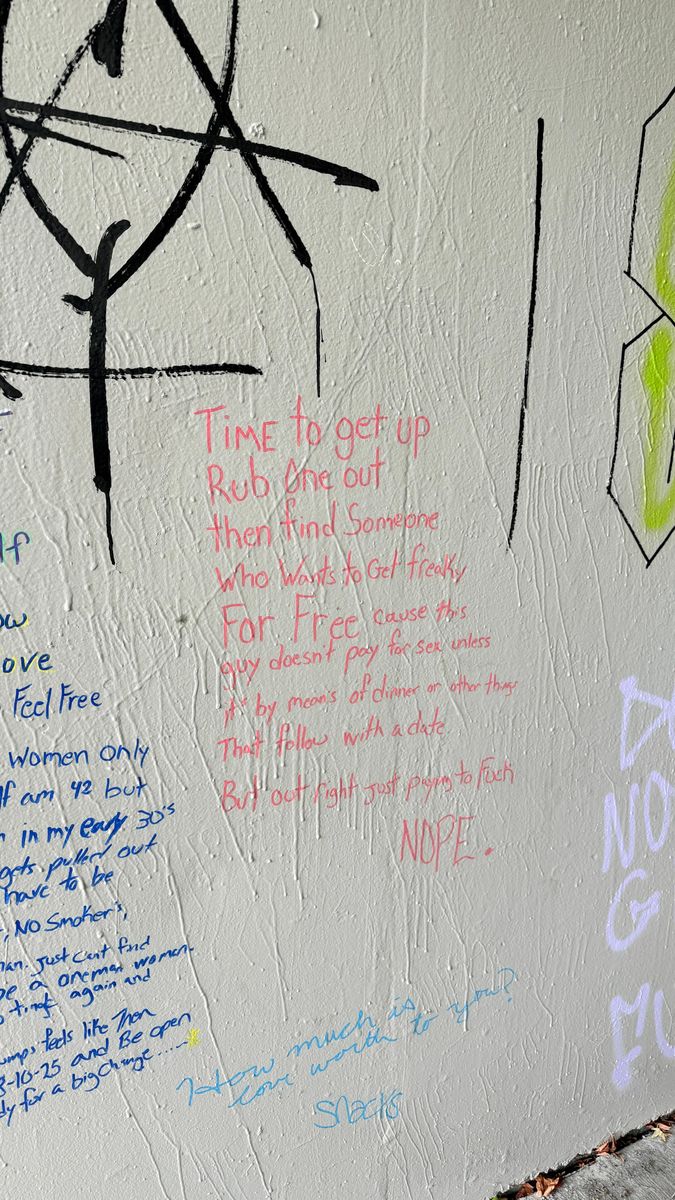 TIME to get up
Rub One out
then find Someone
Who Wants to Get freaky
For Free cause this
guy doesn't pay for sex unless
it's by mean's of dinner or other things
That follow with a date.
But out right just paying to Fuck
NOPE.
How much is
love worth to you?
Snacks
lf
ow
ove
Feel Free
Women Only
If am 42 but
in my early 30's
gets pulled out
have to be
, NO Smoker's,
man. Just can't find
be a oneman woman.
time again and
umps feels like Then
8-10-25 and Be open
dy for a big change......
NO
G